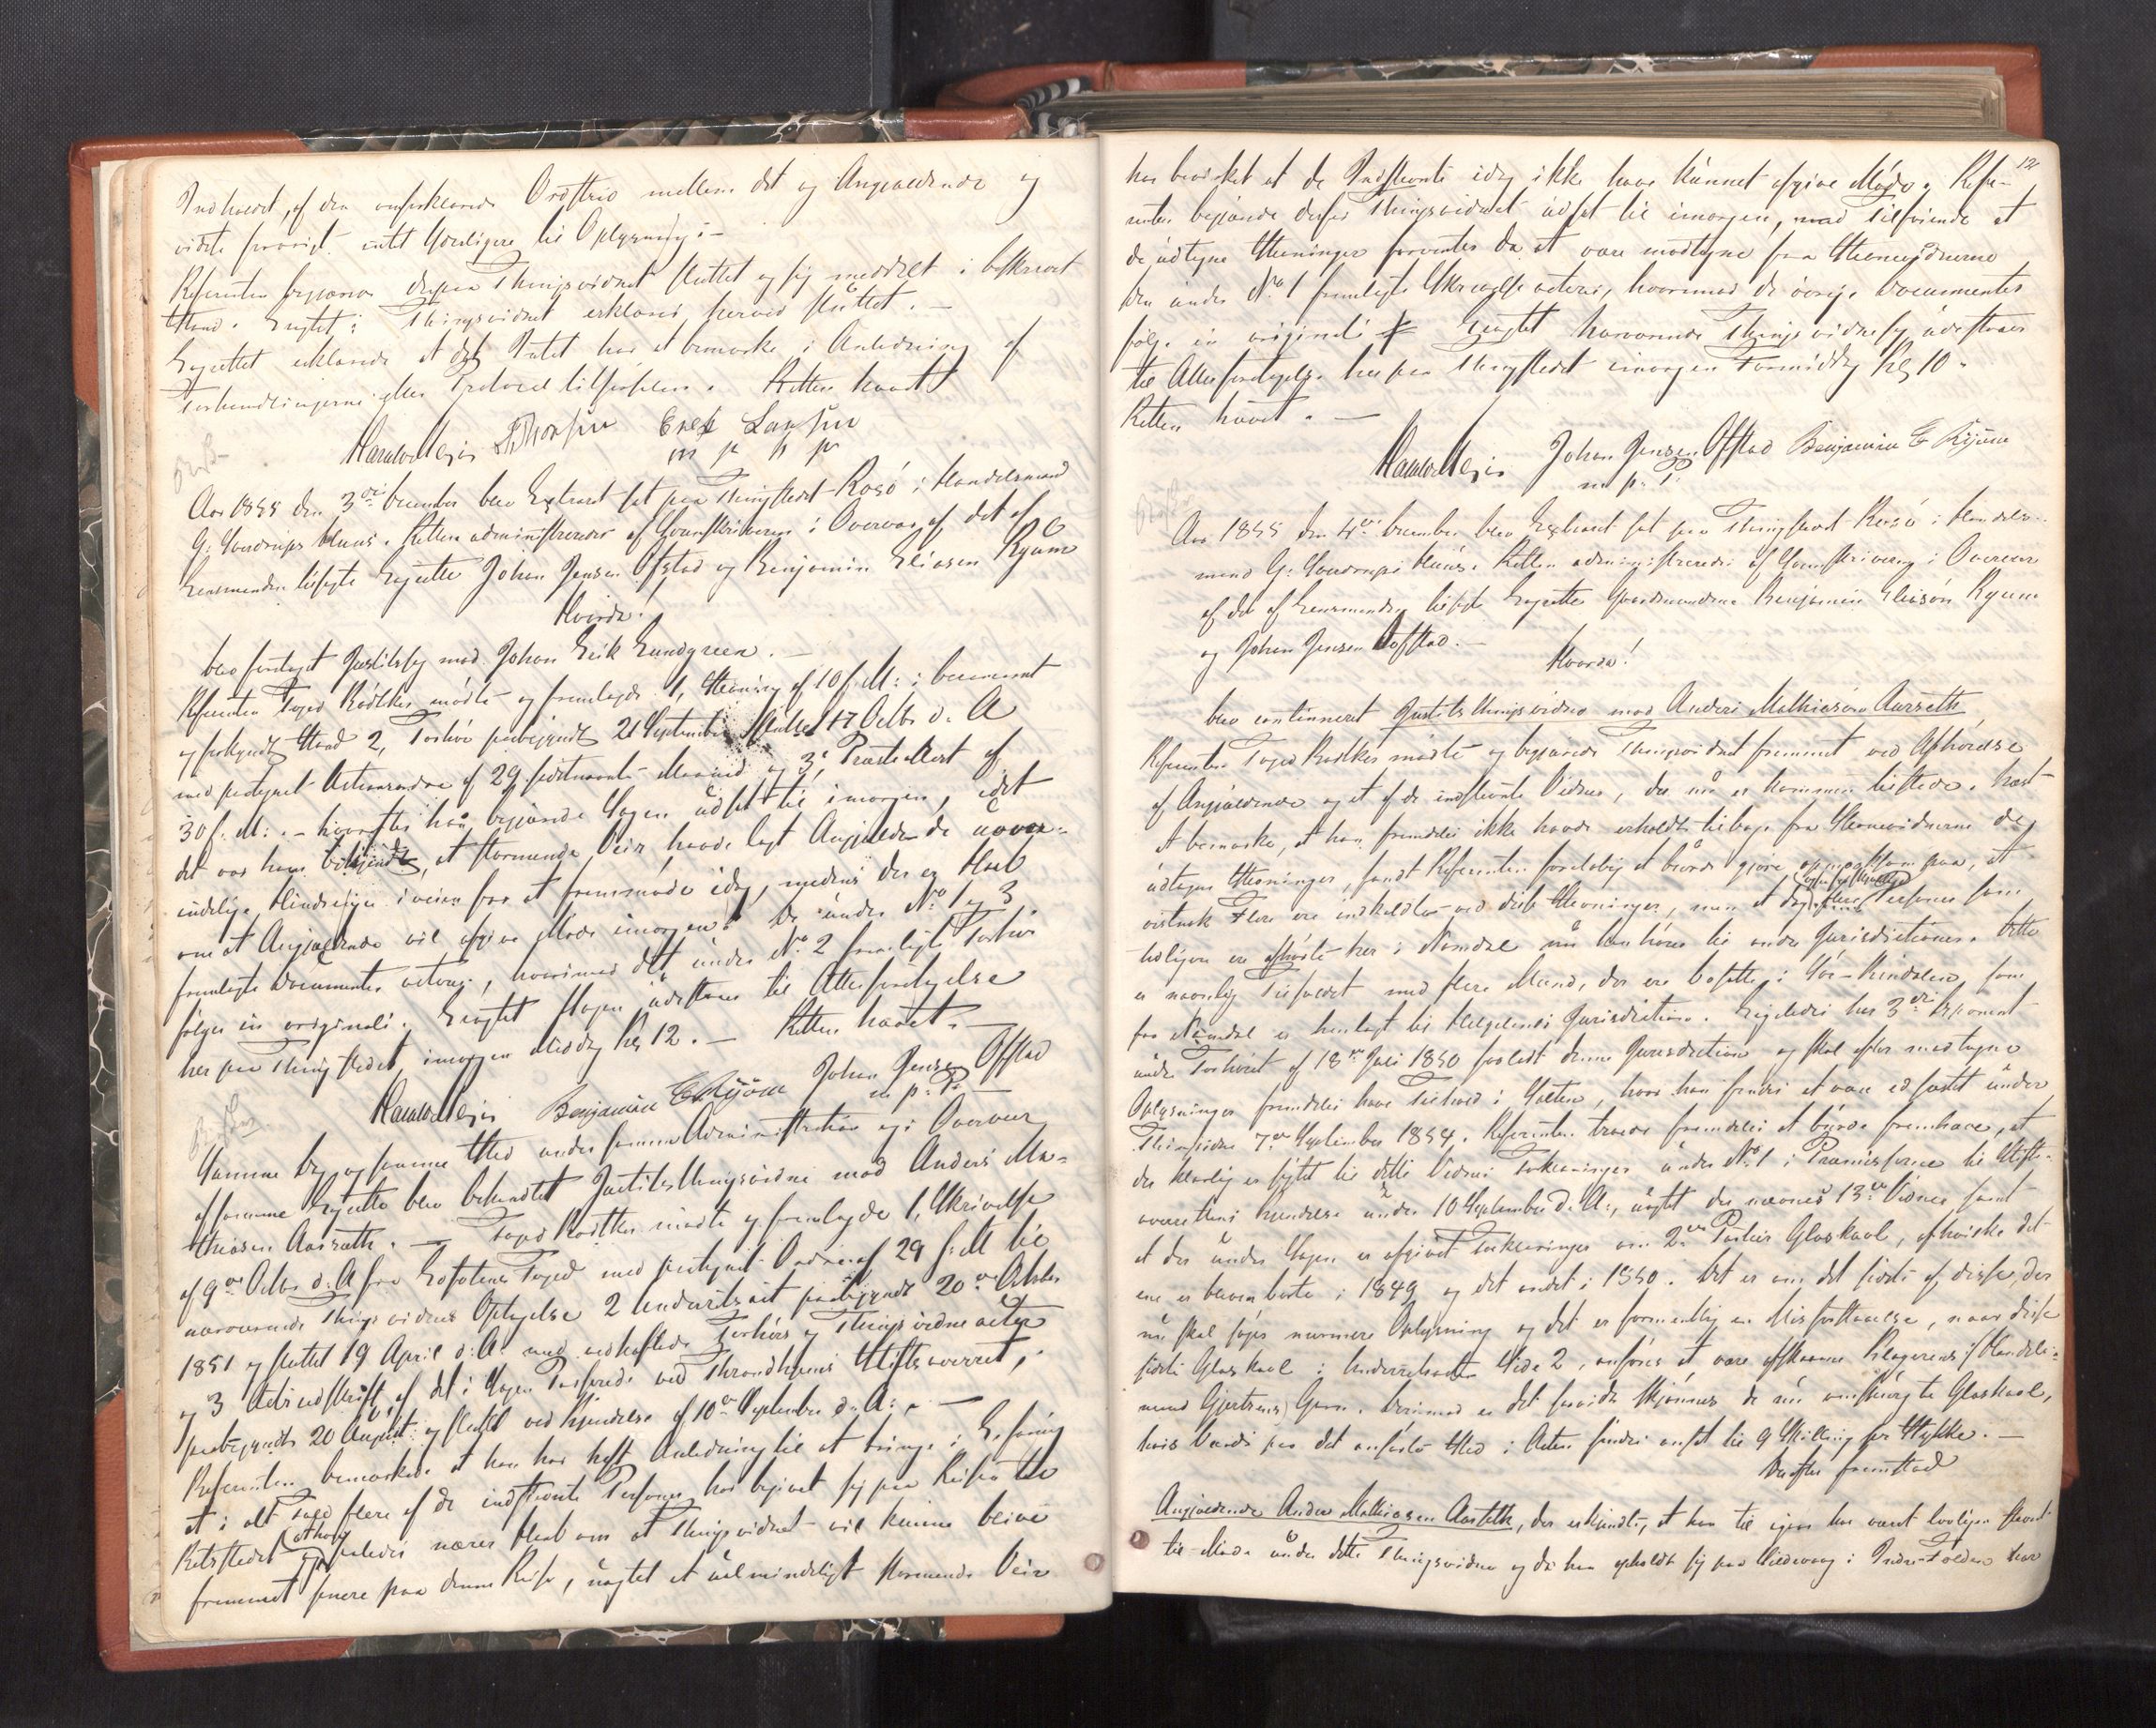 Indholdet, af den omforklarede Ordstrid mellem det og Angjældende og
vidste forøvrigt intet yderligere til Oplysning.-
Referenten begjærer derpaa Thingsvidnet sluttet og sig meddelt i beskreven
Stand. Eragtet: Thingsvidnet erklæres herved sluttet. -
Lagrettet erklærede at det Intet har at bemærke i Anledning af
Forhandlingerne eller Protocoltilførslen. Retten hævet
Thorsen Erek Larssen
m p p p
Aar 1855 den 3die December blev Extraret sat paa Thingstedet Rosø i Handelsmand
G: Sverdrups Huus. Retten administreredes af Sorenskriveren i Overvær af det af
Lensmanden tilsagte Lagrette Johan Jensen Ofstad og Benjamin Eliasen Ryum
Hvorda!
blev foretaget Justitssag mod Johan Erik Lundgreen. -
Referenten Foged Rodtkes mødte og fremlagde 1, Stevning af 10 f. M: i beramet
og forkyndt Stand 2, Forhør paabegyndt 21 September sluttet 17 Octbr d. A
med paategnet Actionsordre af 29 sidstnævnte Maaned og 3, Præste Attest af
30 f. M: . - hvorefter han begjærede Sagen udsat til imorgen, idet
det var ham bekjendt, at stormende Veir havde lagt Angjældende uover-
vindelige Hindringer iveien for at fremmøde idag, medens der er Haab
om at Angjældende vil afgive Møde imorgen. De under No 1 og 3
fremlagte Documenter acteres, hvorimod det under No 2 fremlagte Forhør
følger in originali. Eragtet Sagen udsættes til Atterforetagelse
her paa Thingstedet imorgen Middag Kl 12. - Retten hævet. -
Benjamin E Ryum Johan Jensen Ofstad
m p: P:
Samme Dag og samme Sted under samme Administration og i Overvær
af samme Lagrette blev behandlet Justits Thingsvidne mod Anders Ma-
thiasen Aarsæth. - Foged Rodtkes mødte og fremlagde 1, Skrivelse
af 9de Octbr d. A fra Lofotens Foged med paategnet Ordre af 29 f: M til
nærværende Thingsvidnes Optagelse 2 Underretsact paabegyndt 20de Octbr
1851 og sluttet 19 April d: A: med vedhæftede Forhørs og Thingsvidneacter
og 3 Actsudskrift af det i Sagen Passerede ved Throndhjems Stiftsoverret,
paabegyndt 20 August og sluttet ved Kjendelse af 10de September d: A: . -
Referenten bemærkede at han har havt Anledning til at bringe i Erfaring
at i alt Fald flere af de indstevnte Personer har begivet sig paa Reisen til
Retsstedet og saaledes nærer Haab om at Thingsvidnet vil kunne blive
fremmet senere paa denne Reise, uagtet et ualmindeligt stormende Veir
12
har bevirket at de Indstevnte idag ikke have kunnet afgive Møde. Refe-
renten begjærede derfor Thingsvidnet udsat til imorgen, med Tilføiende at
de udtagne Stevninger forventes da at være modtagne fra Stevnevidnerne
Den under No 1 fremlagte Skrivelse acteres, hvorimod de øvrige Documenter
følge in originali. Eragtet Nærværende Thingsvidnesag udsættes
til Atterforetagelse her paa Thingstedet imorgen Formiddag Kl 10.
Retten hævet. -
Johan Jensen Ofstad Benjamin E Ryum
m p: P:
Aar 1855 den 4de December blev Extraret sat paa Thingstedet Rosø i Handels-
mand G: Sverdrups Huus. Retten administreredes af Sorenskriveren i Overvær
af det af Lensmanden tilsagte Lagrette Gaardmændene Benjamin Eliasen Ryum
og Johan Jensen Ofstad. -
Hvorda!
blev continueret Justits Thingsvidne mod Anders Mathiasen Aarsæth
Referenten Foged Rodtkes mødte og begjærede Thingsvidnet fremmet ved Afhørelse
af Angjældende og et af de indstevnte Vidner, der nu er kommen tilstede.
At bemærke, at han fremdeles ikke havde erholdt tilbage fra Stevnevidnerne de
udtagne Stevninger, fandt Referenten foreløbig at burde gjøre opmærksom paa, at
vistnok Flere ere indkaldte ved disse Stevninger, men at Personer som
tidligere ere afhørte her i Namdal nu henhøre til andre Jurisdictioner. Dette
er navnlig Tilfældet med flere Mænd, der ere bosatte i Sør-Bindalen, som
fra Namdal er henlagt til Helgelands Jurisdiction. Ligeledes har 3die Deponent
under Forhøret af 18de Juli 1850 forladt denne Jurisdiction og skal efter modtagne
Oplysninger fremdeles have Tilhold i Salten, hvor han findes at være edfæstet under
Thingsvidne 7de September 1854. Referenten troede fremdeles at burde fremhæve, at
der klarlig er sigtet til dette Vidnes Forklaringer under No 1 i Præmisserne til Stifts-
overrettens Kjendelse under 10 September d. A:, uagtet der nævnes 13de Vidne samt
at der under Sagen er afgivet Forklaringer om 2de Partier Glaskavl, af hvilke det
ene er bleven borte i 1849 og det andet i 1850. Det er om det sidste af disse, der
nu skal søges nærmere Oplysning og det er formentlig en Misforstaaelse, naar disse
sidste Glaskavl i Underretsacten Side 2, anføres at være afskaarne Klagerens (Handels-
mand Gjertsens) Garn. Derimod er det forrædes skjønnes de nu omspurgte Glaskavl,
hvis Værdi paa det anførte Sted i Acten findes ansat til 9 Skilling per Stykke. -
Derefter fremstod
Angjældende Anders Mathiasen Aarseth, der erkjendte, at han til igaar har været lovligen stevnt
til Møde under dette Thingsvidne og da han opholdt sig paa i Indre-Folden har